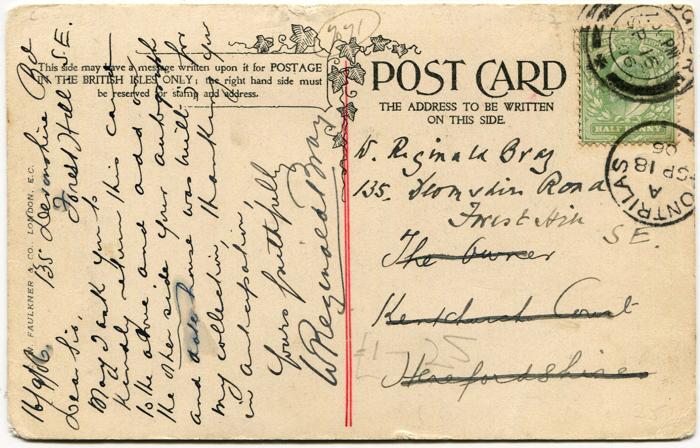 4991
This side may have a message written upon it for POSTAGE
IN THE BRITISH ISLES ONLY; the right hand side must
be reserved for stamp and address.
FAULKNER & CO. LONDON, E.C.
135 Devonshire Rd
Forest Hill S.E.
16/9/06.
Dear Sir,
May I ask you to
kindly return this card
to the above and add on
the other side your autograph
and date house was built, for
my collection, thanking you
in anticipation,
Yours faithfully
W Reginald Bray
POST CARD
THE ADDRESS TO BE WRITTEN
ON THIS SIDE.
HALF PENNY
W. Reginald Bray
135, Devonshire Road
Forest Hill
S.E.
The Owner
Kentchurch Court
Herefordshire
£1-25
PONTRILAS
A
SP 18
06